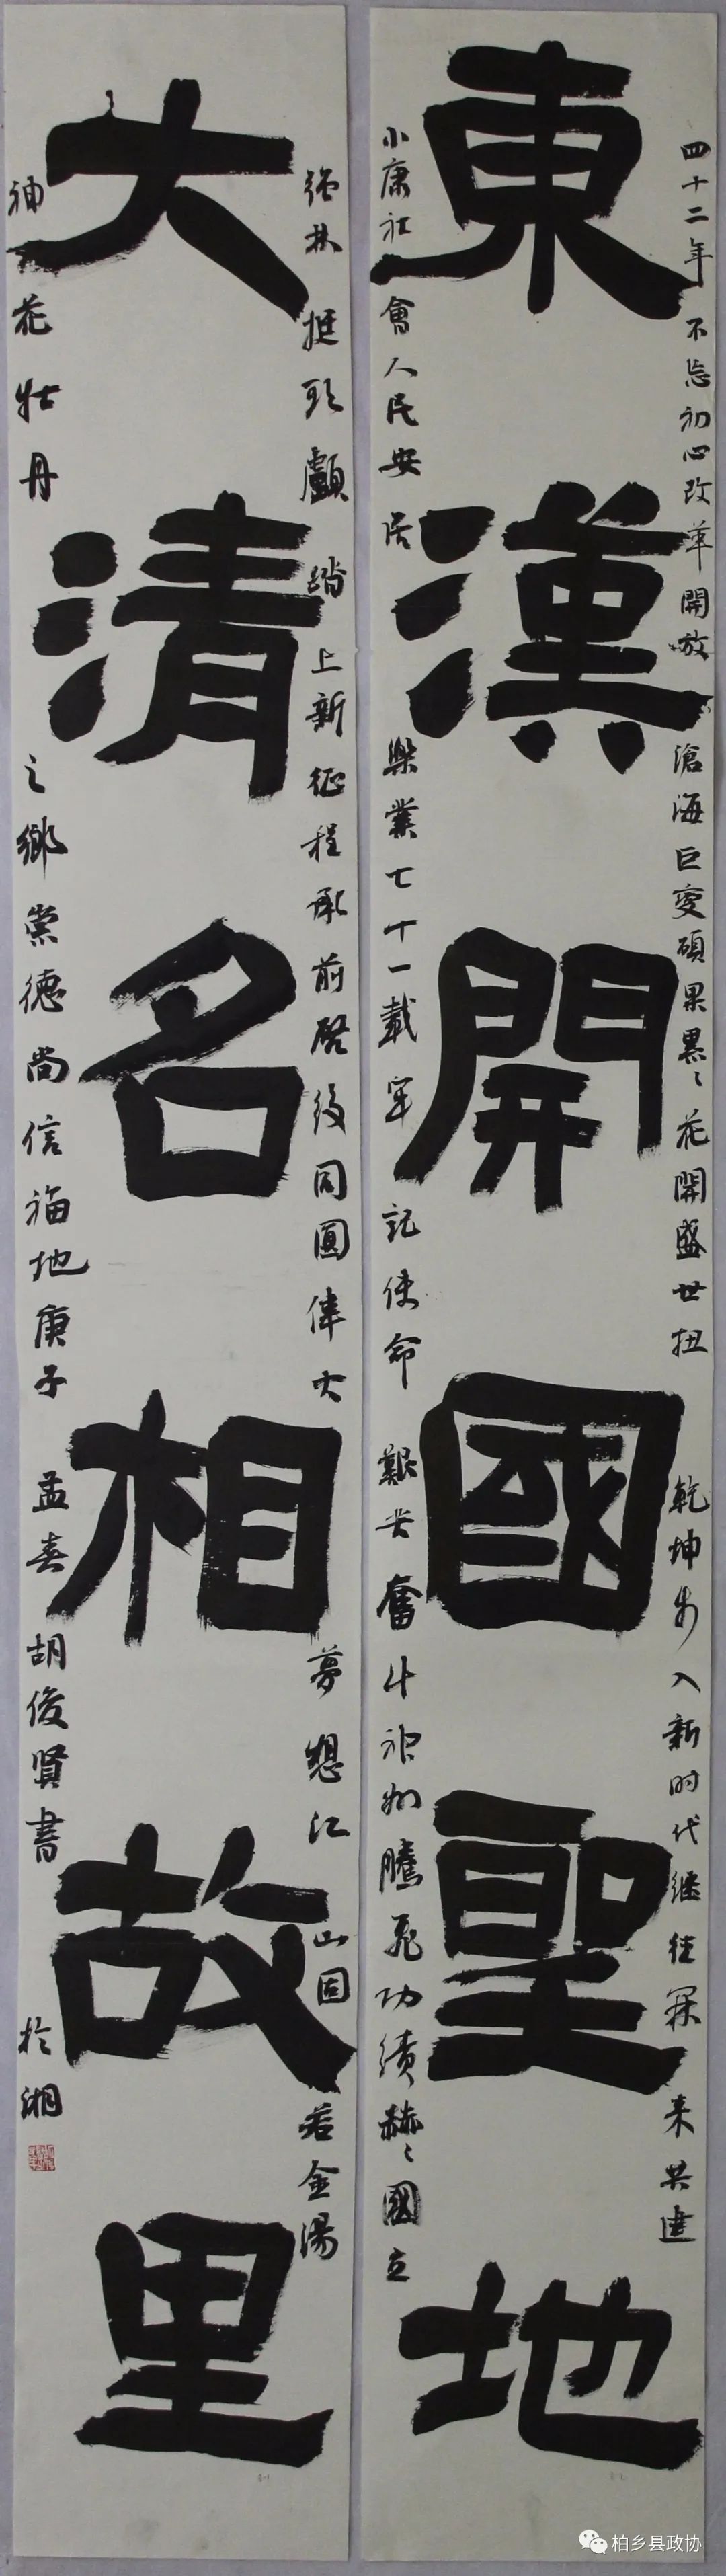 東漢開國聖地
四十二年不忘初心改革開放滄海巨變碩果累々花開盛世扭乾坤步入新时代继往開来共建
小康社會人民安居樂業七十一載牢記使命艱苦奮斗神州騰飛功績赫々國立
大清名相故里
强林挺頭顱踏上新征程承前啓後同圓偉大夢想江山固若金湯
神花牡丹之鄉崇德尚信福地庚子孟春胡俊賢書於湖
柏乡县政协